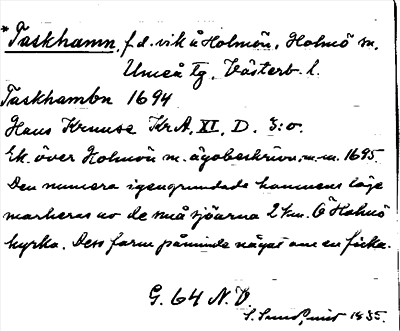 *Taskhamn, f.d. vik å Holmön, Holmö sn.
Umeå tg, Västerb. l.
Taskhambn 1694
Hans Kruuse Kr.A, XI, D. 3:o.
Ek. över Holmön m. ägobeskrivn. m.m. 1695.
Den numera igengrundade hamnens läge
markeras av de små sjöarna 2 km. Ö Holmö
kyrka. Dess form påminde något om en ficka.
G. 64 N.V.
1935.